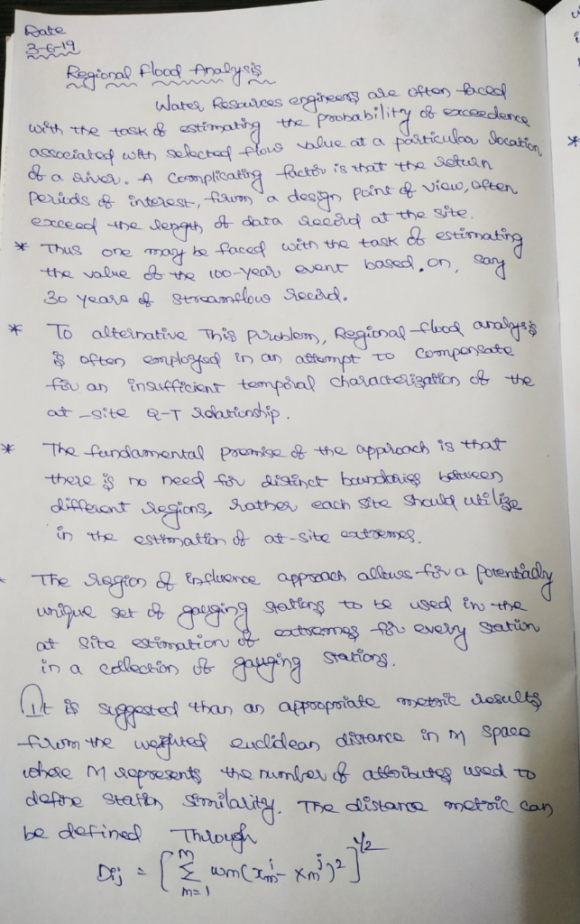 Date
3-6-19
Regional Flood Analysis
Water Resources engineers are often faced
with the task of estimating the probability of exceedence
associated with selected flow value at a particular location
of a river. A complicating factor is that the return
periods of interest, from a design point of view, often
exceed the length of data record at the site.
* Thus one may be faced with the task of estimating
the value of the 100-year event based, on, say
30 years of streamflow record.
* To alternative This problem, Regional flood analysis
is often employed in an attempt to compensate
for an insufficient temporal characterization of the
at-site Q-T relationship.
* The fundamental premise of the approach is that
there is no need for distinct boundaries between
different regions, rather each site should utilize
in the estimation of at-site extremes.
The region of influence approach allows for a potentially
unique set of gauging stations to be used in the
at site estimation of extremes for every station
in a collection of gauging stations.
It is suggested than an appropriate metric results
from the weighted euclidean distance in M space
where M represents the number of attributes used to
define station similarity. The distance metric can
be defined Through
Dij = [ Σ m=1 M wm(xm^i - xm^j)2 ]^1/2